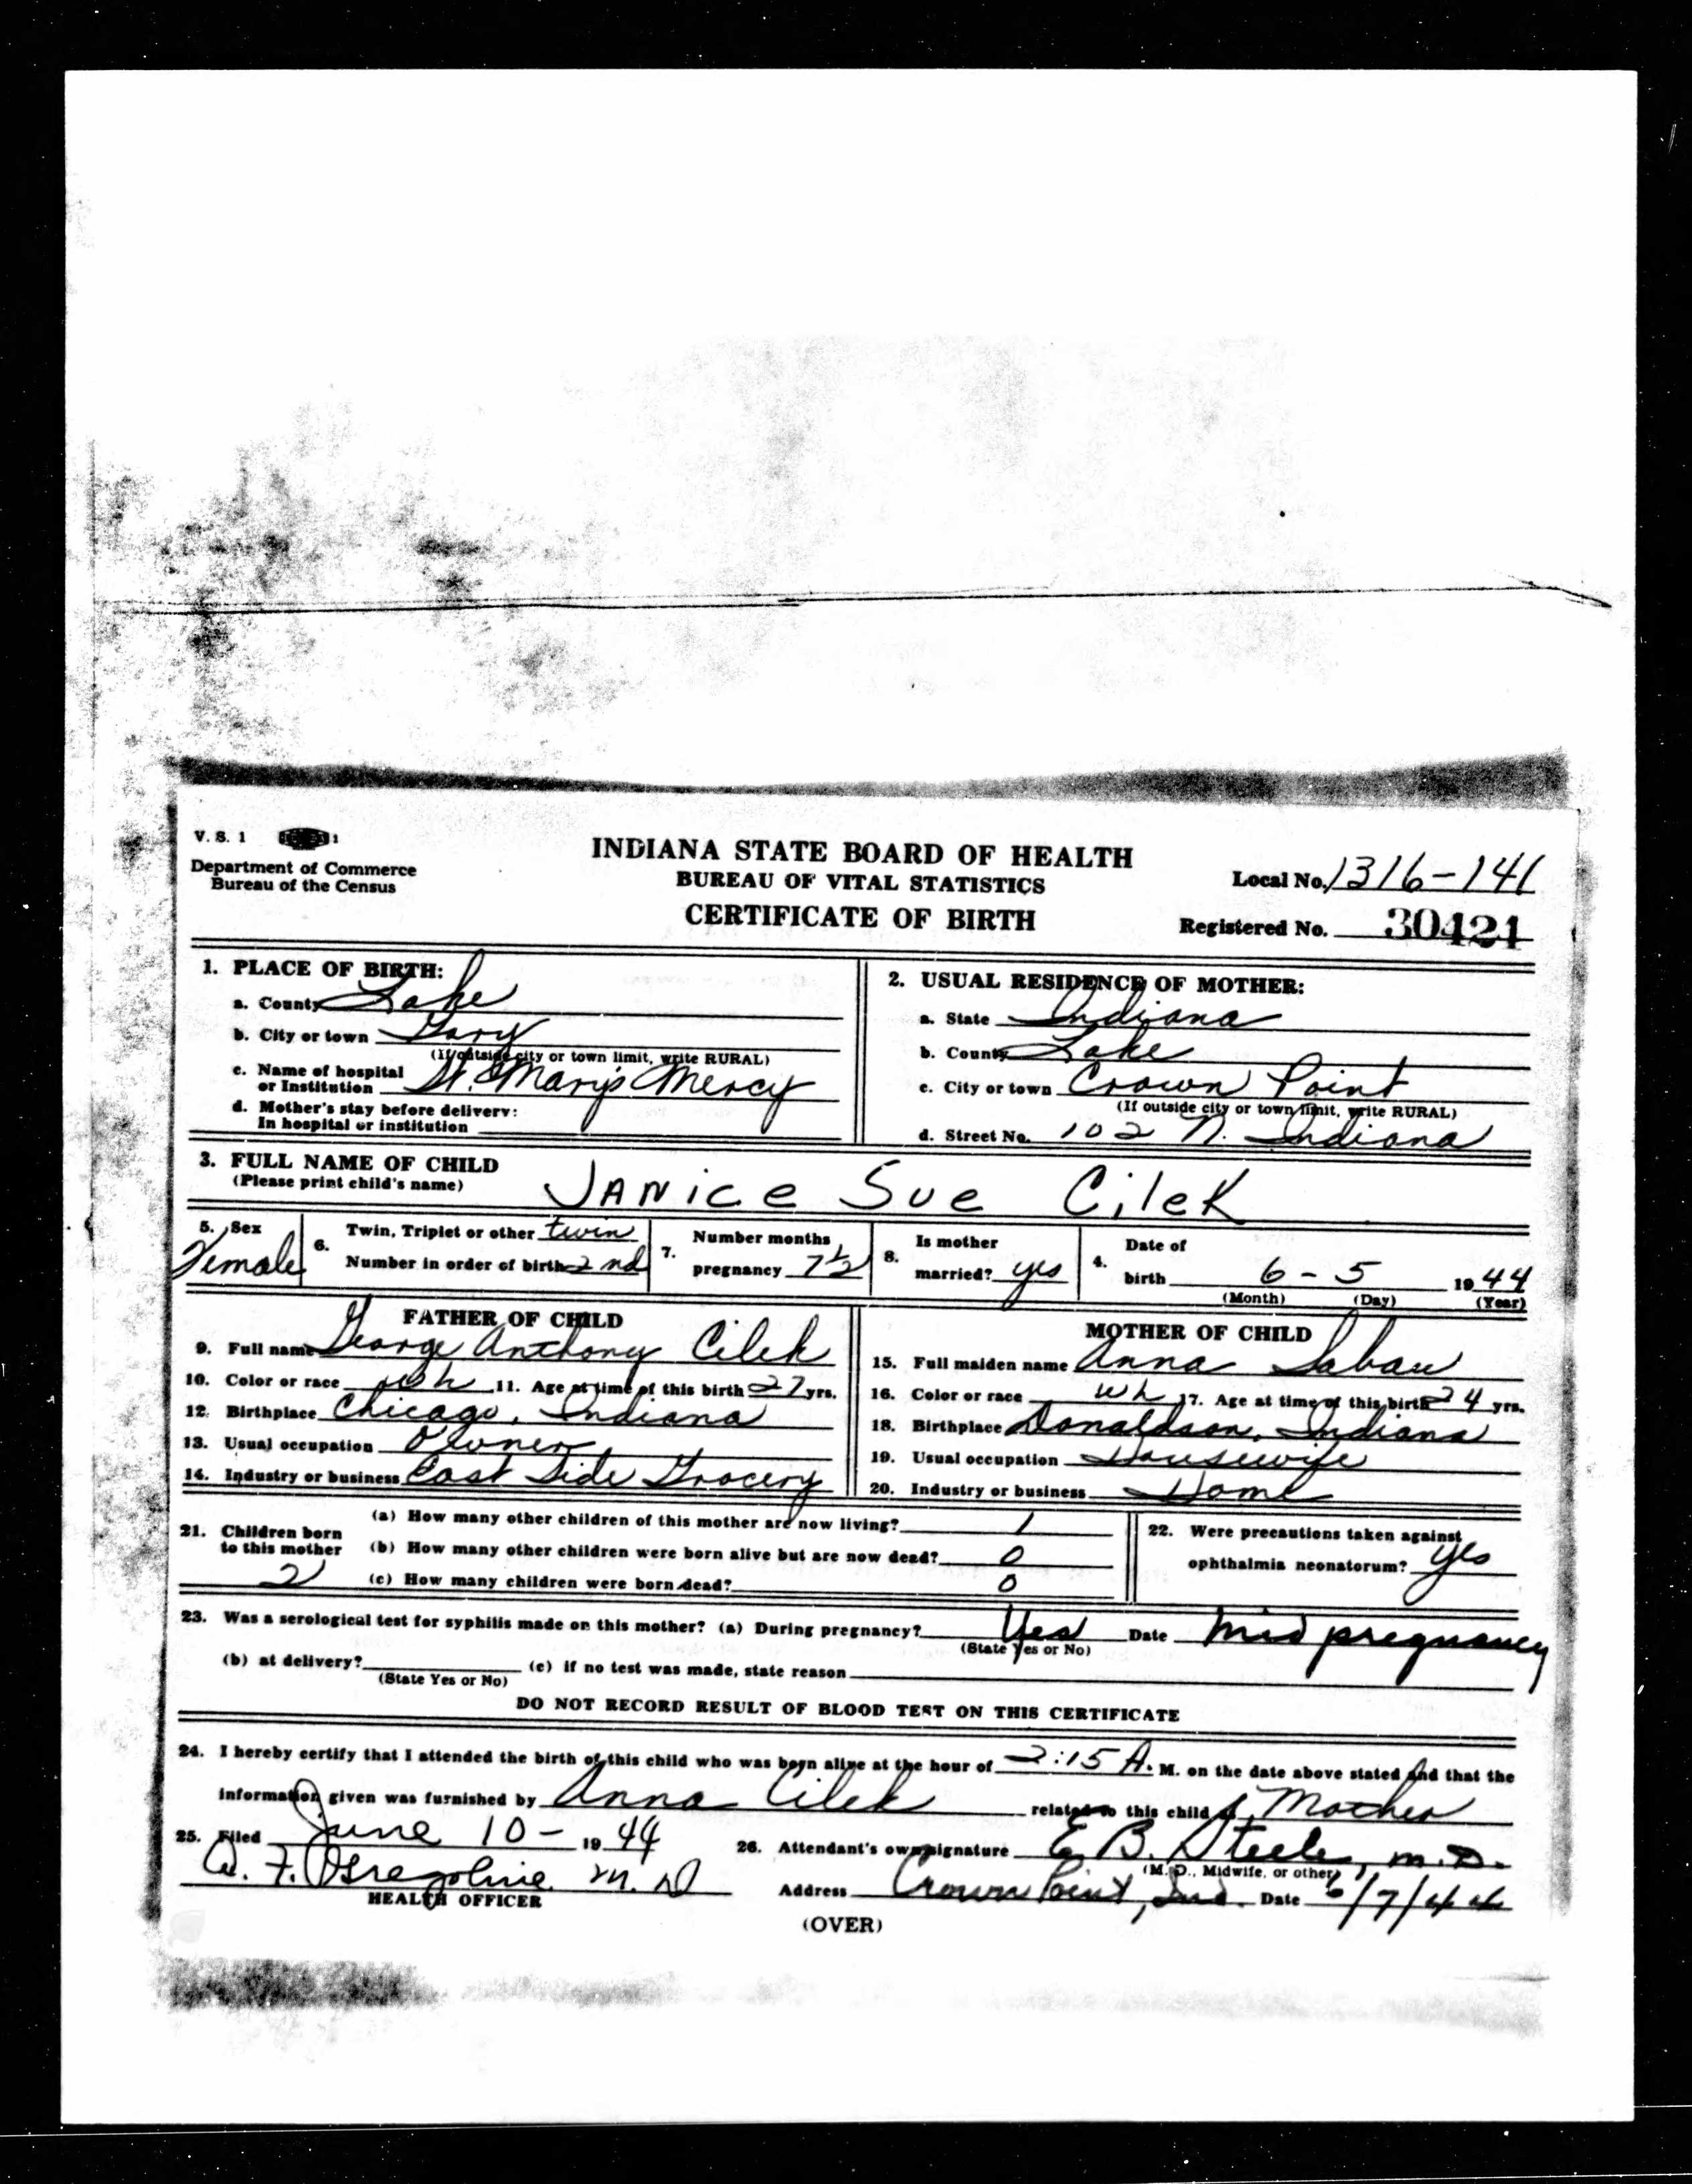 V. S. 1
Department of Commerce
Bureau of the Census
INDIANA STATE BOARD OF HEALTH
BUREAU OF VITAL STATISTICS
CERTIFICATE OF BIRTH
Local No. 1316-141
Registered No. 30421
1. PLACE OF BIRTH:
a. County Lake
b. City or town Gary
(If outside city or town limit, write RURAL)
c. Name of hospital
or Institution St. Mary's Mercy
d. Mother's stay before delivery:
In hospital or institution
2. USUAL RESIDENCE OF MOTHER:
a. State Indiana
b. County Lake
c. City or town Crown Point
(If outside city or town limit, write RURAL)
d. Street No. 102 N. Indiana
3. FULL NAME OF CHILD
(Please print child's name) JANice Sue CileK
5. Sex
Female
6. Twin, Triplet or other twin
Number in order of birth 2nd
7. Number months
pregnancy 7½
8. Is mother
married? yes
4. Date of
birth 6-5 1944
(Month) (Day) (Year)
FATHER OF CHILD
9. Full name George Anthony Cilek
10. Color or race wh 11. Age at time of this birth 27 yrs.
12. Birthplace Chicago, Indiana
13. Usual occupation Owner
14. Industry or business East Side Grocery
MOTHER OF CHILD
15. Full maiden name Anna Sabau
16. Color or race wh 17. Age at time of this birth 24 yrs.
18. Birthplace Donaldson, Indiana
19. Usual occupation Housewife
20. Industry or business Home
21. Children born
to this mother
2
(a) How many other children of this mother are now living? 1
(b) How many other children were born alive but are now dead? 0
(c) How many children were born dead? 0
22. Were precautions taken against
ophthalmia neonatorum? yes
23. Was a serological test for syphilis made on this mother? (a) During pregnancy? Yes Date Mid pregnancy
(State Yes or No)
(b) at delivery? (c) if no test was made, state reason
(State Yes or No)
DO NOT RECORD RESULT OF BLOOD TEST ON THIS CERTIFICATE
24. I hereby certify that I attended the birth of this child who was born alive at the hour of 2:15 A. M. on the date above stated and that the
information given was furnished by Anna Cilek related to this child as Mother
25. Filed June 10- 1944
M.D
HEALTH OFFICER
26. Attendant's own signature E B. Steele, M.D.
(M. D., Midwife, or other)
Address Crown Point, Ind. Date 6/7/44
(OVER)